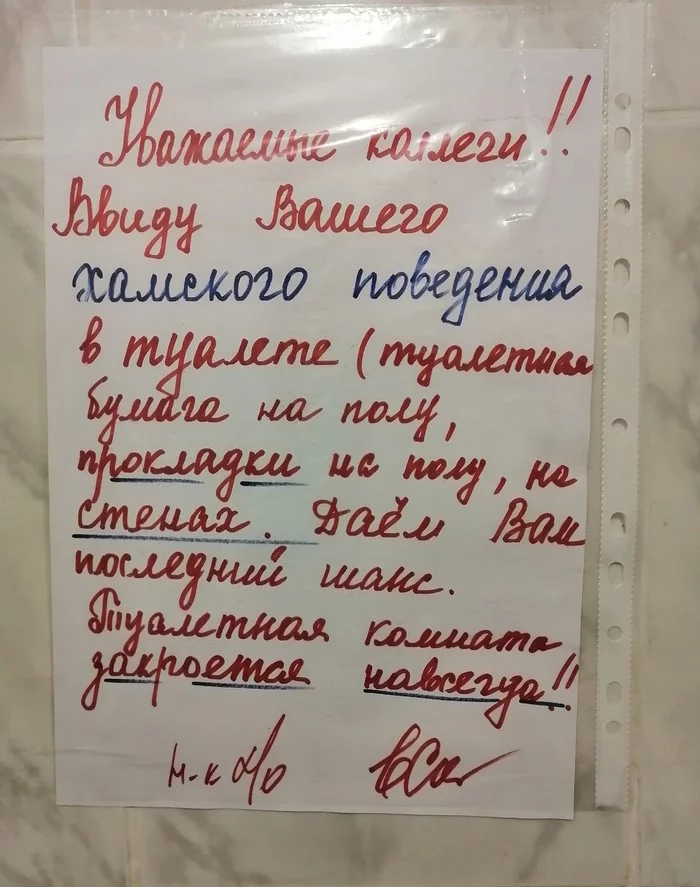 Уважаемые коллеги!!
Ввиду Вашего
хамского поведения
в туалете (туалетная
бумага на полу,
прокладки на полу, на
стенах. Даём Вам
последний шанс.
Туалетная комната
закроется навсегда!!
н-к